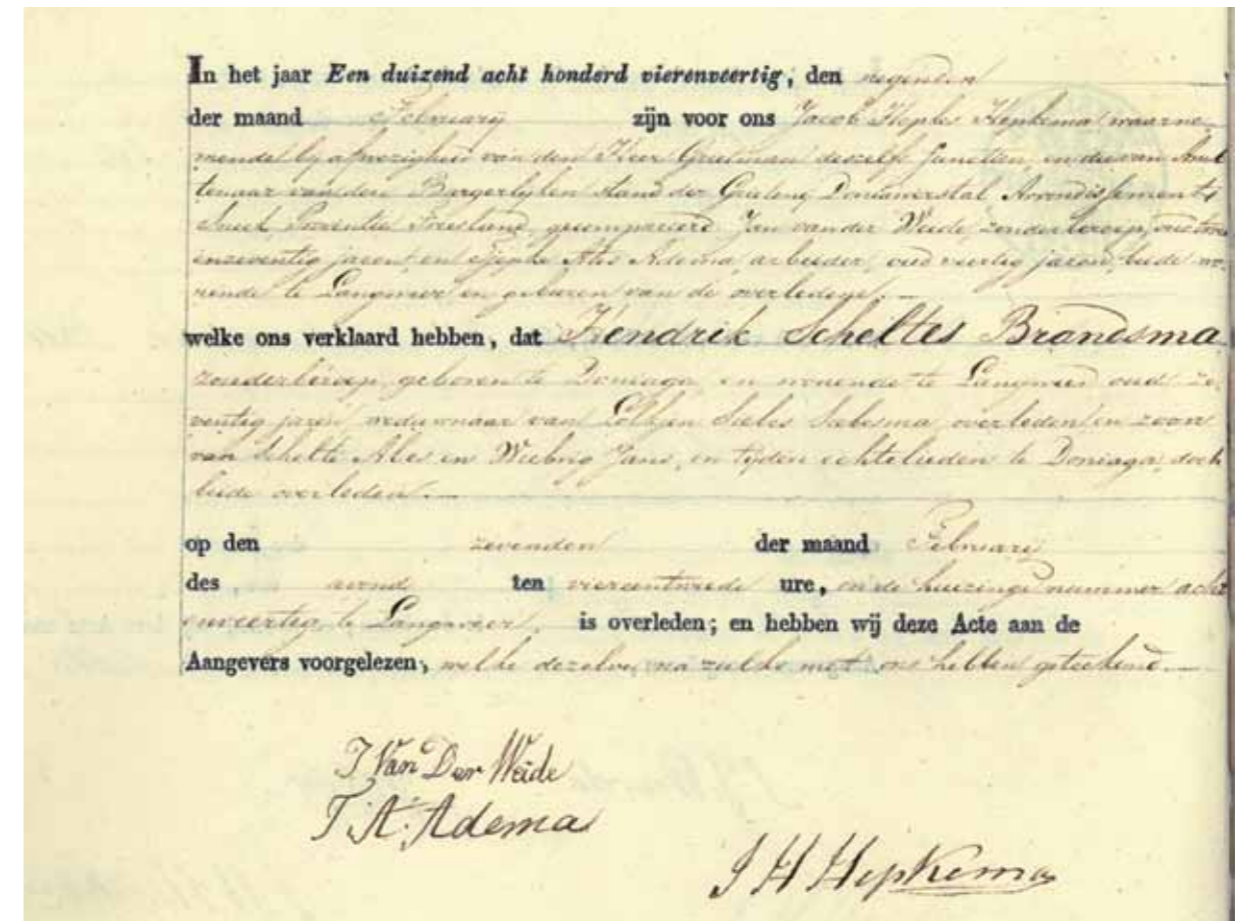 In het jaar Een duizend acht honderd vierenveertig, den negenden
der maand Februarij zijn voor ons Jacob Hepkes Hepkema waarne-
mende bij afwezigheid van den Heer Grietman deszelfs functien, en die van Amb-
tenaar van den Burgerlijken stand der Grietenij Doniawerstal Arrondissement
Sneek Provintie Friesland, gecompareerd Jan van der Weide, zonder beroep, oud twee
enzeventig jaren, en Ates Adema, arbeider, oud veertig jaren, beide wo-
nende te Langweer en geburen van de overledene,
welke ons verklaard hebben, dat Hendrik Scheltes Brandsma
zonder beroep, geboren te Doniaga, en wonende te Langweer oud ze-
ventig jaren weduwnaar van Sietses Siebesma, overleden en zoon
van Schelte Ales en Wiebrig Jans, in tijden echtelieden te Doniaga, doch
beide overleden.
op den zevenden der maand Februarij
des avond ten vier ure, in de huizinge nummer acht
enveertig te Langweer, is overleden; en hebben wij deze Acte aan de
Aangevers voorgelezen, welke dezelve met ons hebben geteekend.
J Van Der Weide
T. A. Adema
J H Hepkema